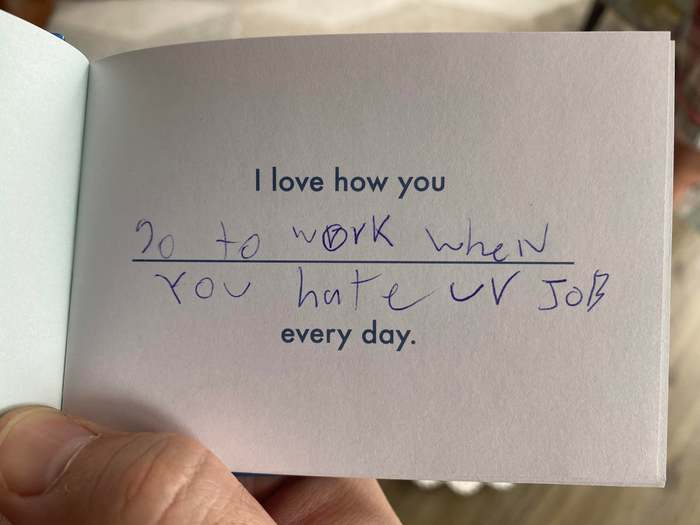 I love how you
go to work when
you hate ur JoB
every day.